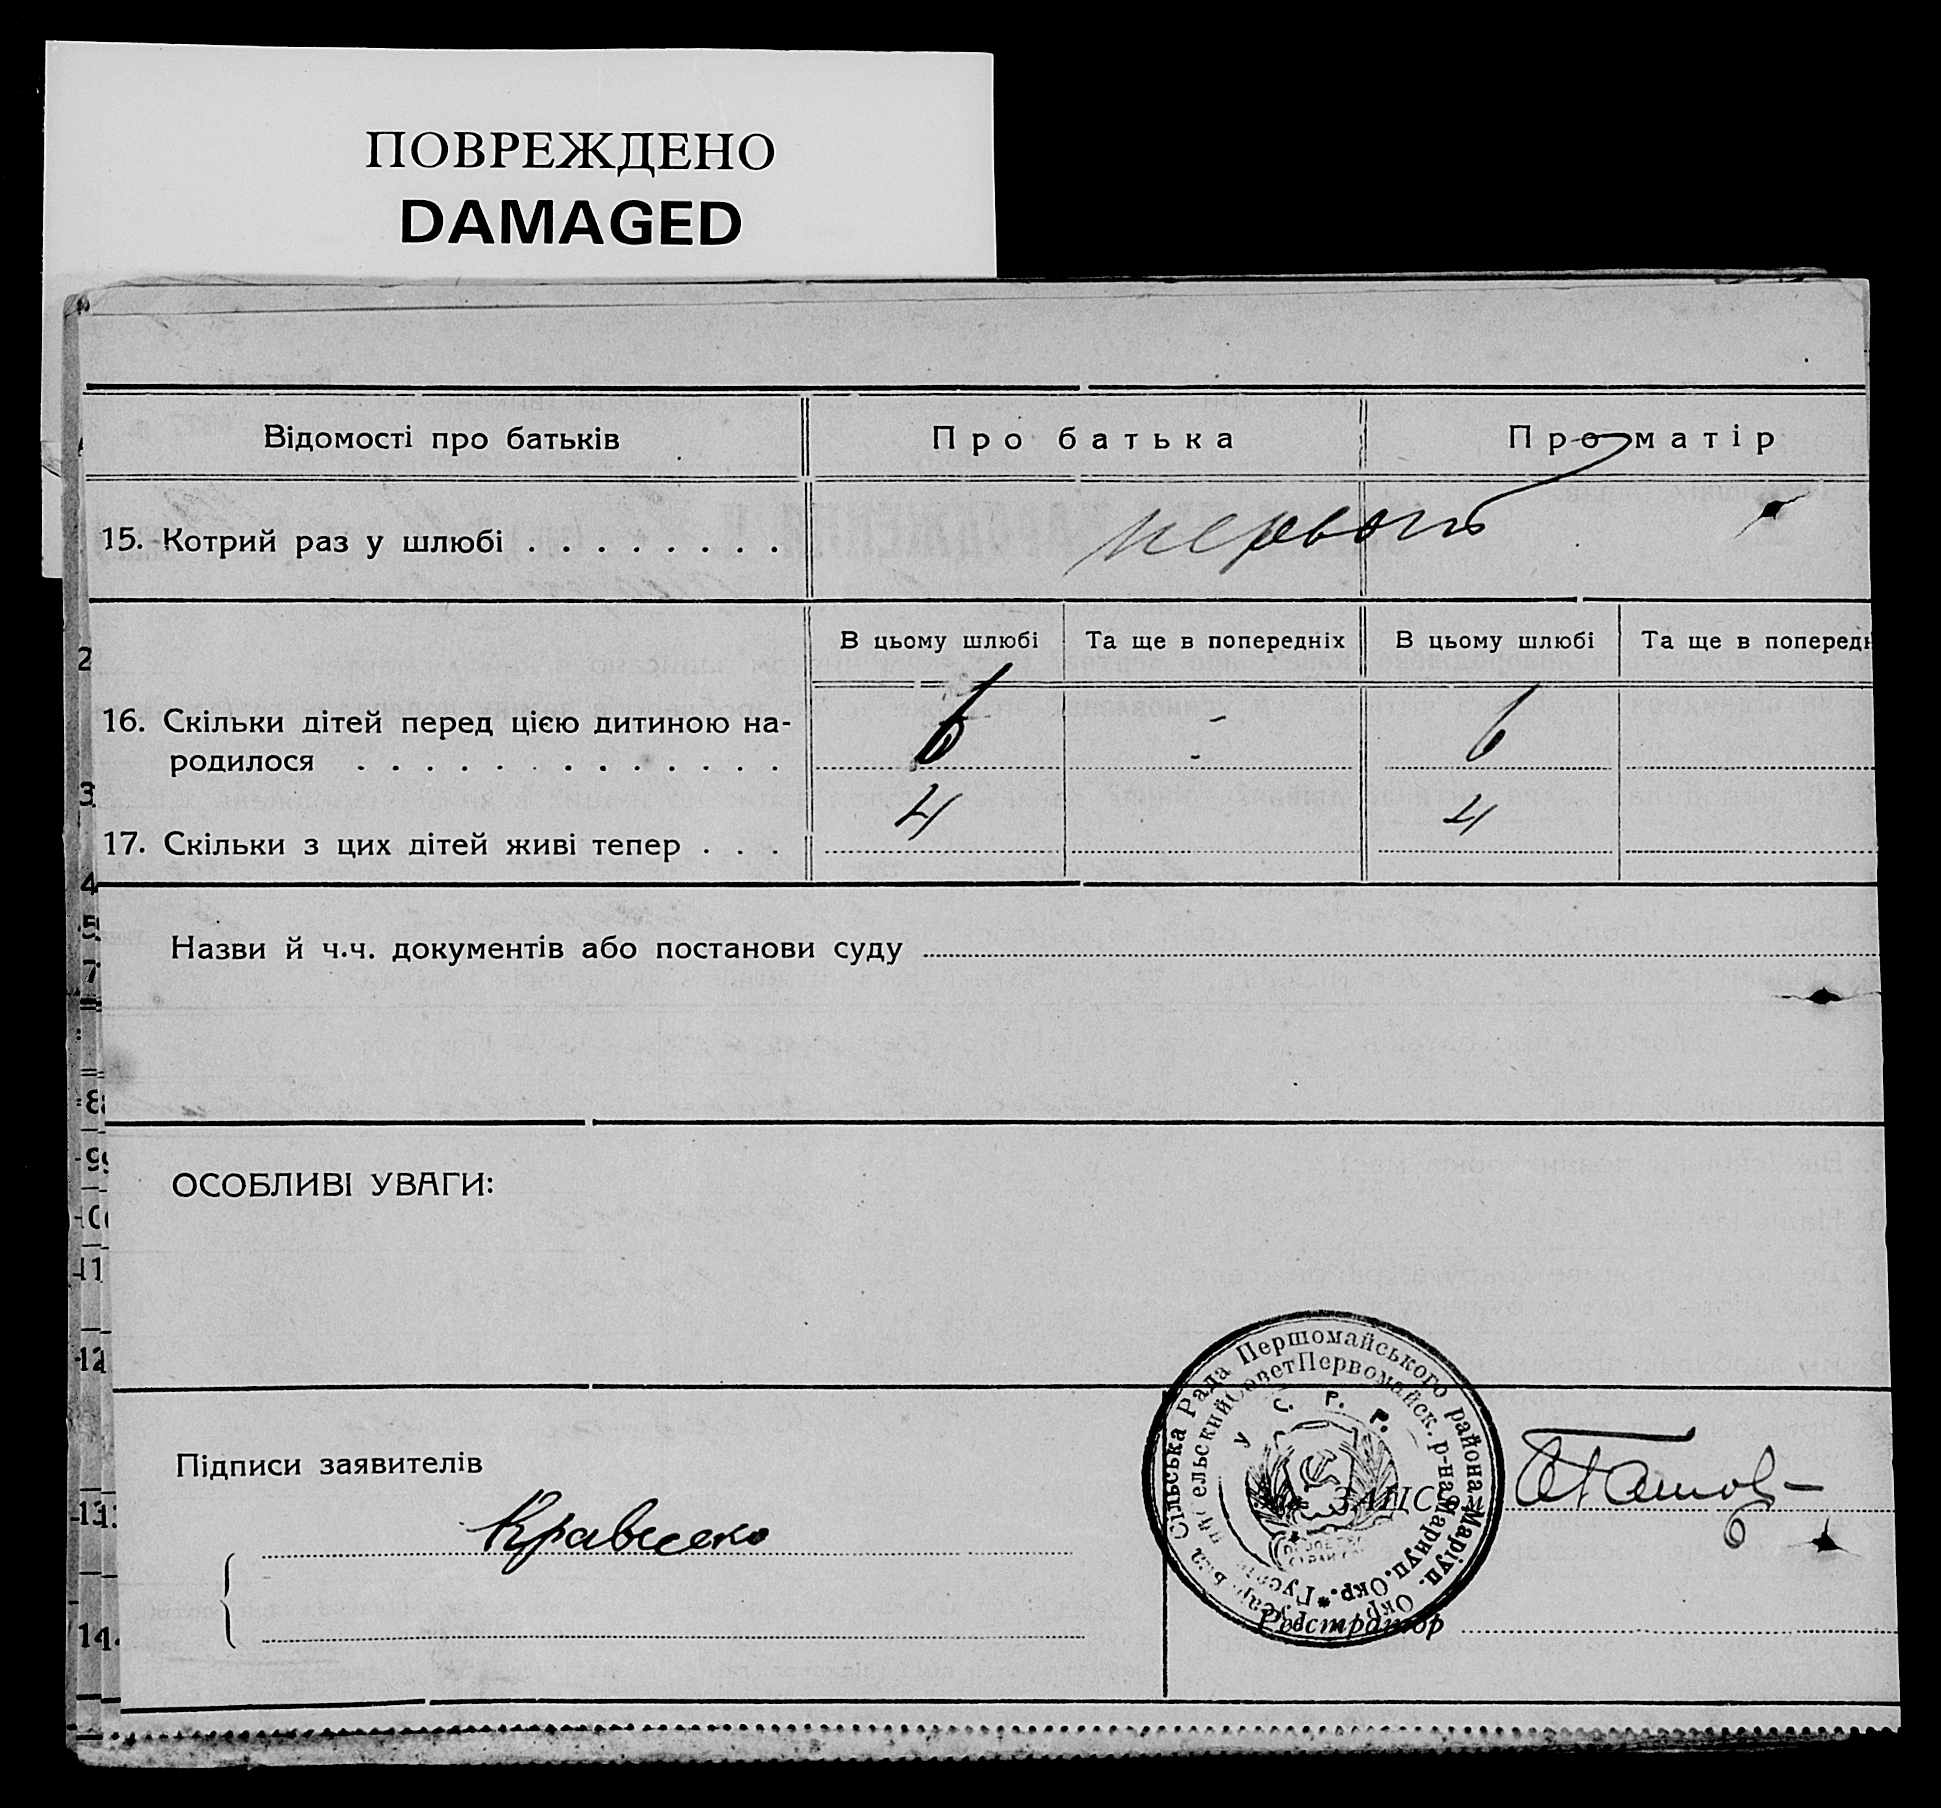 ПОВРЕЖДЕНО
DAMAGED
Відомості про батьків
Про батька
Про матір
15. Котрий раз у шлюбі . . . . . . . .
В цьому шлюбі
Та ще в попередніх
В цьому шлюбі
Та ще в поперед
16. Скільки дітей перед цією дитиною на-
родилося . . . . . . . . . . . . .
6 - 6
-
17. Скільки з цих дітей живі тепер . . .
4 4
Назви й ч.ч. документів або постанови суду
ОСОБЛИВІ УВАГИ:
Підписи заявителів
Сільська Рада Першомайського района Маріуп. Окр
Первомайск. р-на Мариуп. Окр. *
У. С. Р. Р.
ЗАГС
Реєстратор
2
3
4
5
7
8
9
10
11
12
13
14